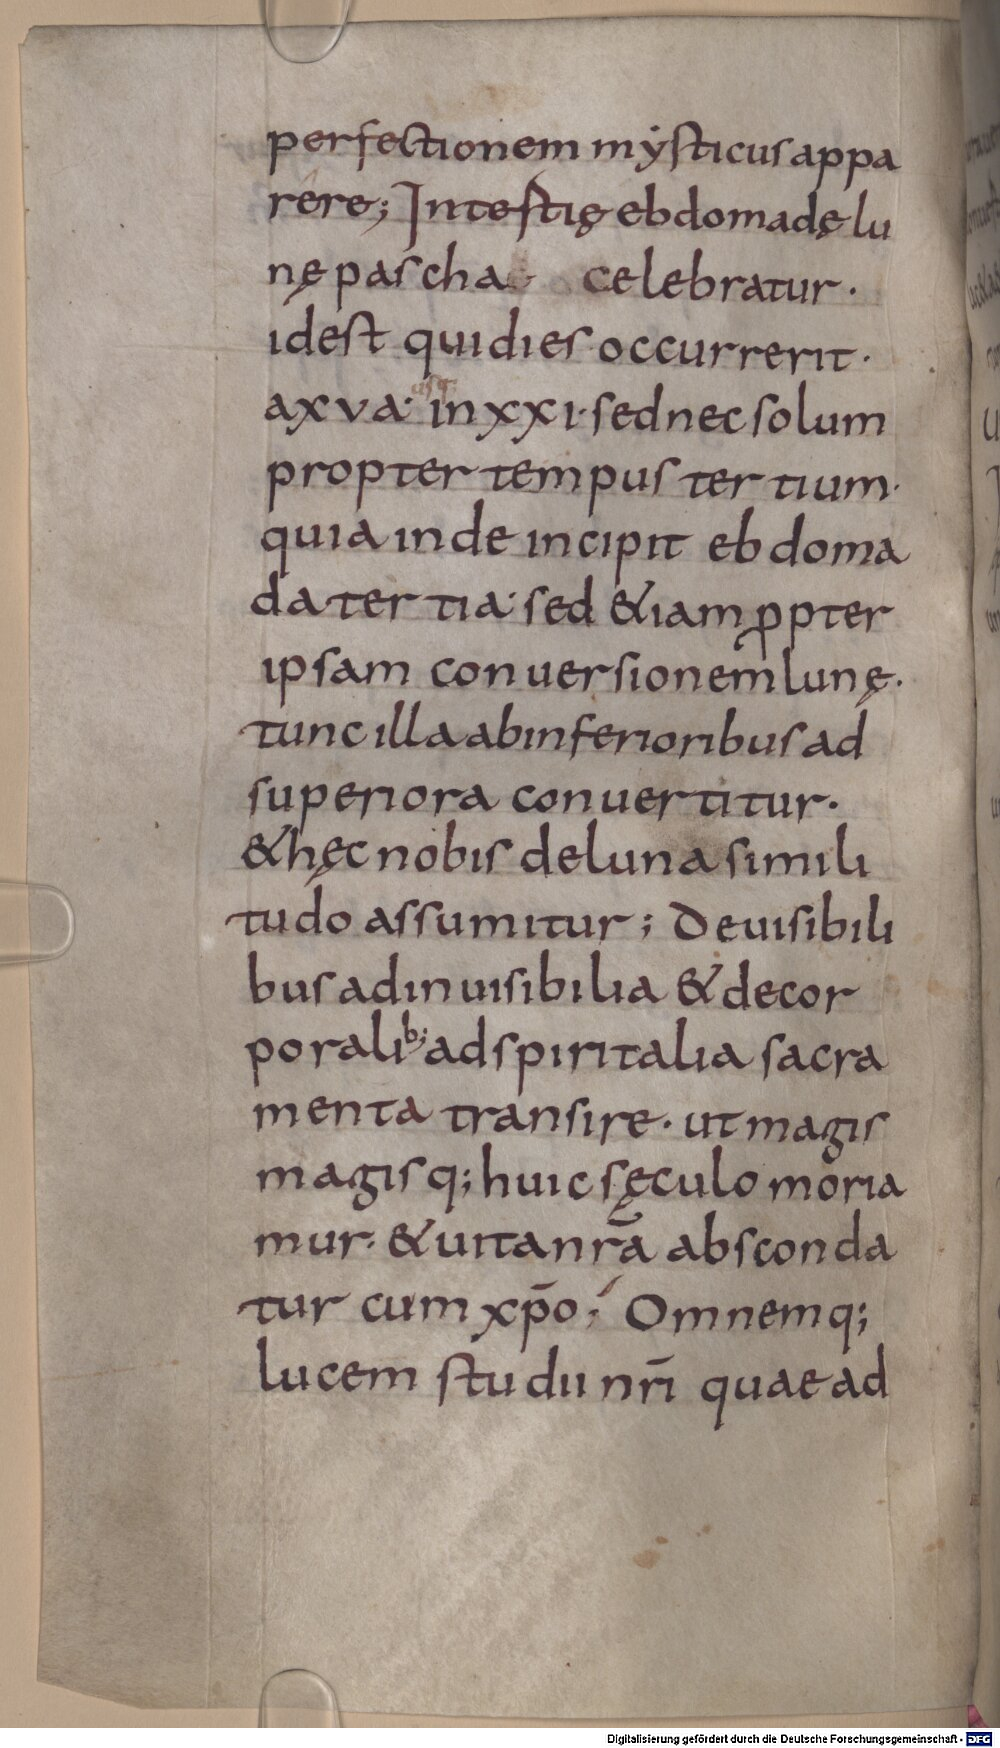 perfectionem mysticus appa
rere; In testię ebdomadę lu
nę pascha celebratur.
idest qui dies occurrerit.
a xva. usq; in xxi. sed nec solum
propter tempus tertium.
quia inde incipit ebdoma
da tertia. sed &iam ꝓpter
ipsam conuersionem lunę.
tunc illa ab inferioribus ad
superiora conuertitur.
& hęc nobis de luna simili
tudo assumitur; De uisibili
bus ad inuisibilia & de cor
poralib; ad spiritalia sacra
menta transire. ut magis
magisq; huic sęculo moria
mur. & uita nr̄a absconda
tur cum xp̄o; Omnemq;
lucem studii nr̄i quae ad
Digitalisierung gefördert durch die Deutsche Forschungsgemeinschaft - DFG